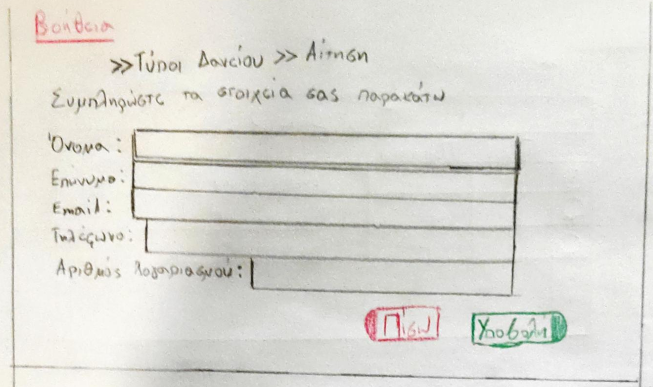 Βοήθεια
>> Τύποι Δανείου >> Αίτηση
Συμπληρώστε τα στοιχεία σας παρακάτω
Όνομα:
Επώνυμο:
Email:
Τηλέφωνο:
Αριθμός λογαριασμού:
Πίσω Υποβολή